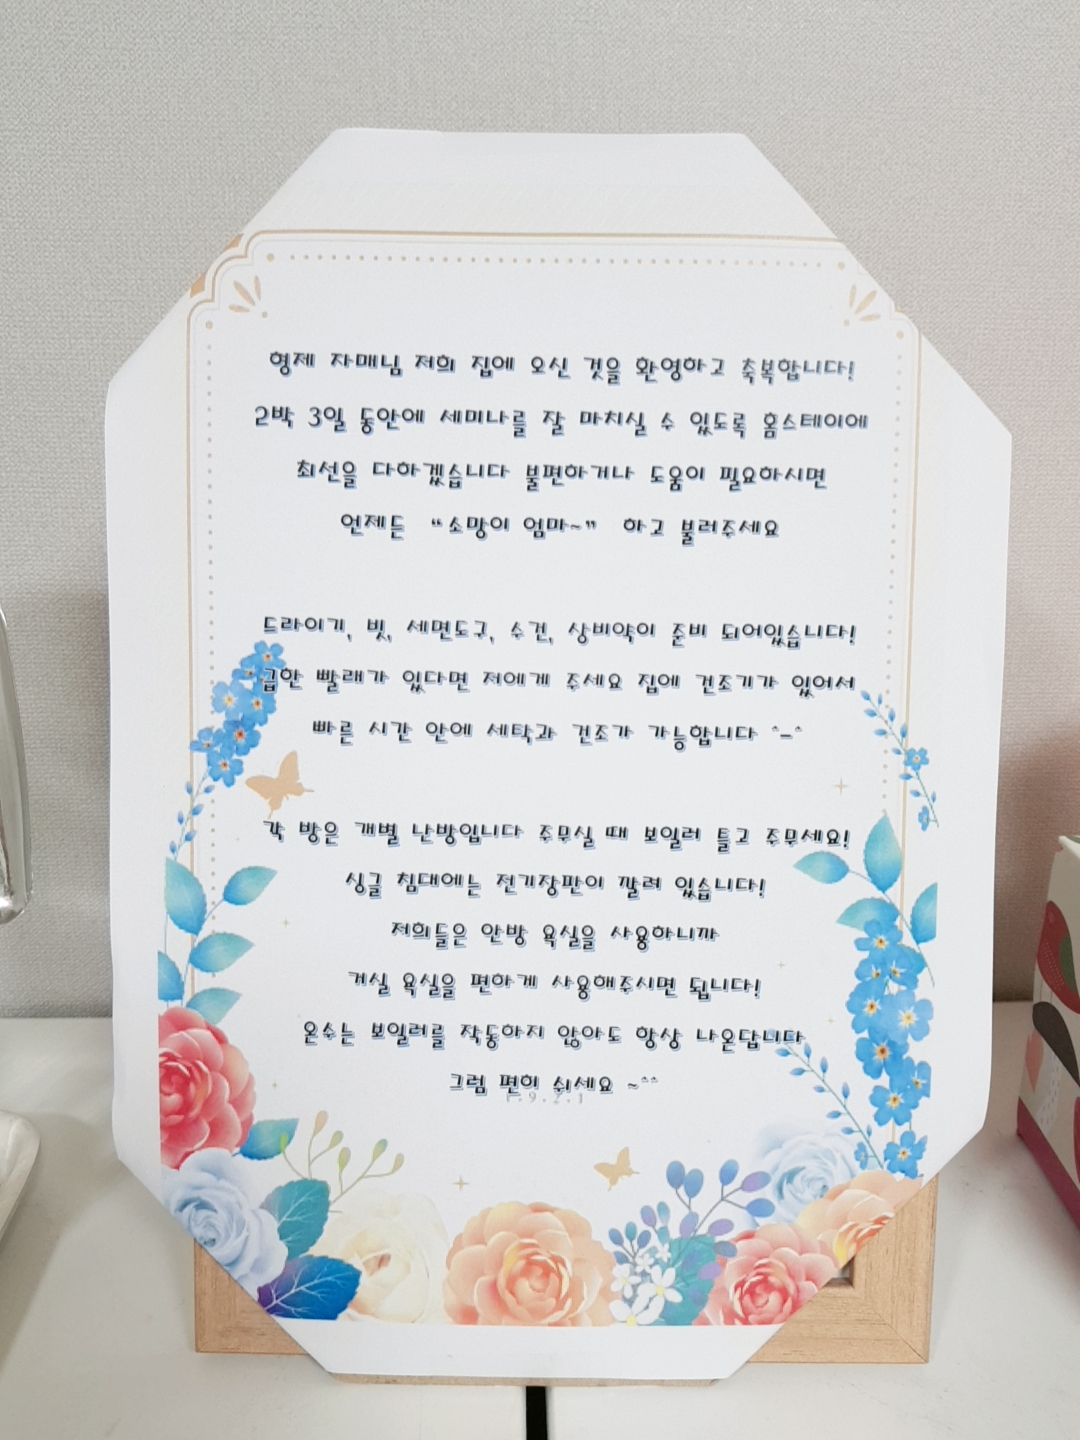 형제 자매님 저희 집에 오신 것을 환영하고 축복합니다!
2박 3일 동안에 세미나를 잘 마치실 수 있도록 홈스테이에
최선을 다하겠습니다 불편하거나 도움이 필요하시면
언제든 “소망이 엄마~” 하고 불러주세요
드라이기, 빗, 세면도구, 수건, 상비약이 준비 되어있습니다!
급한 빨래가 있다면 저에게 주세요 집에 건조기가 있어서
빠른 시간 안에 세탁과 건조가 가능합니다 ^-^
각 방은 개별 난방입니다 주무실 때 보일러 틀고 주무세요!
싱글 침대에는 전기장판이 깔려 있습니다!
저희들은 안방 욕실을 사용하니까
거실 욕실을 편하게 사용해주시면 됩니다!
온수는 보일러를 작동하지 않아도 항상 나온답니다
그럼 편히 쉬세요 ~^^